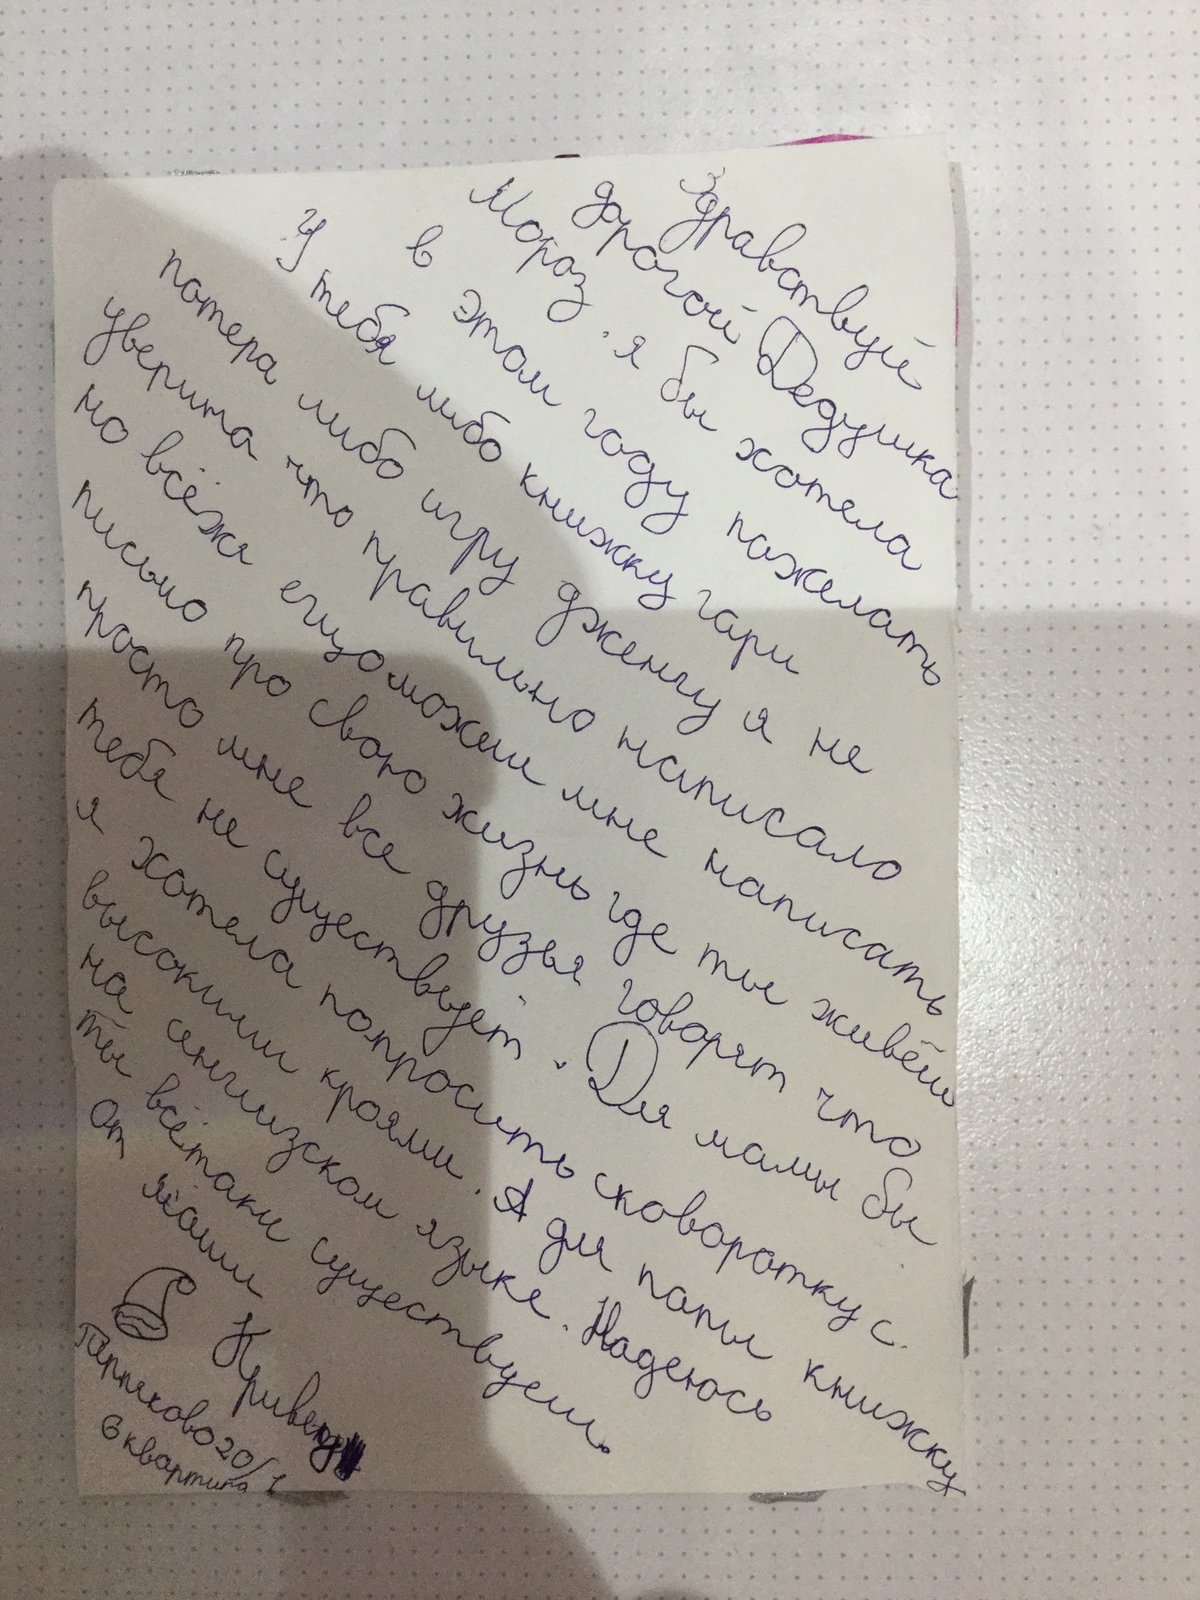 Здравствуй
дорогой Дедушка
Мороз. я бы хотела
в этом году пожелать
У тебя либо книжку гари
потера либо игру дженгу я не
уверина что правильно написало
но всёжа ещо можеш мне написать
письмо про свою жизнь где ты живёш
просто мне все друзья говорят что
тебя не существует. Для мамы бы
я хотела попросить сковоротку с
высокими кроями. А для папы книжку
на сенгизском языке. Надеюсь
ты всётаки существуеш.
От
Привет
20/1
6 квартира